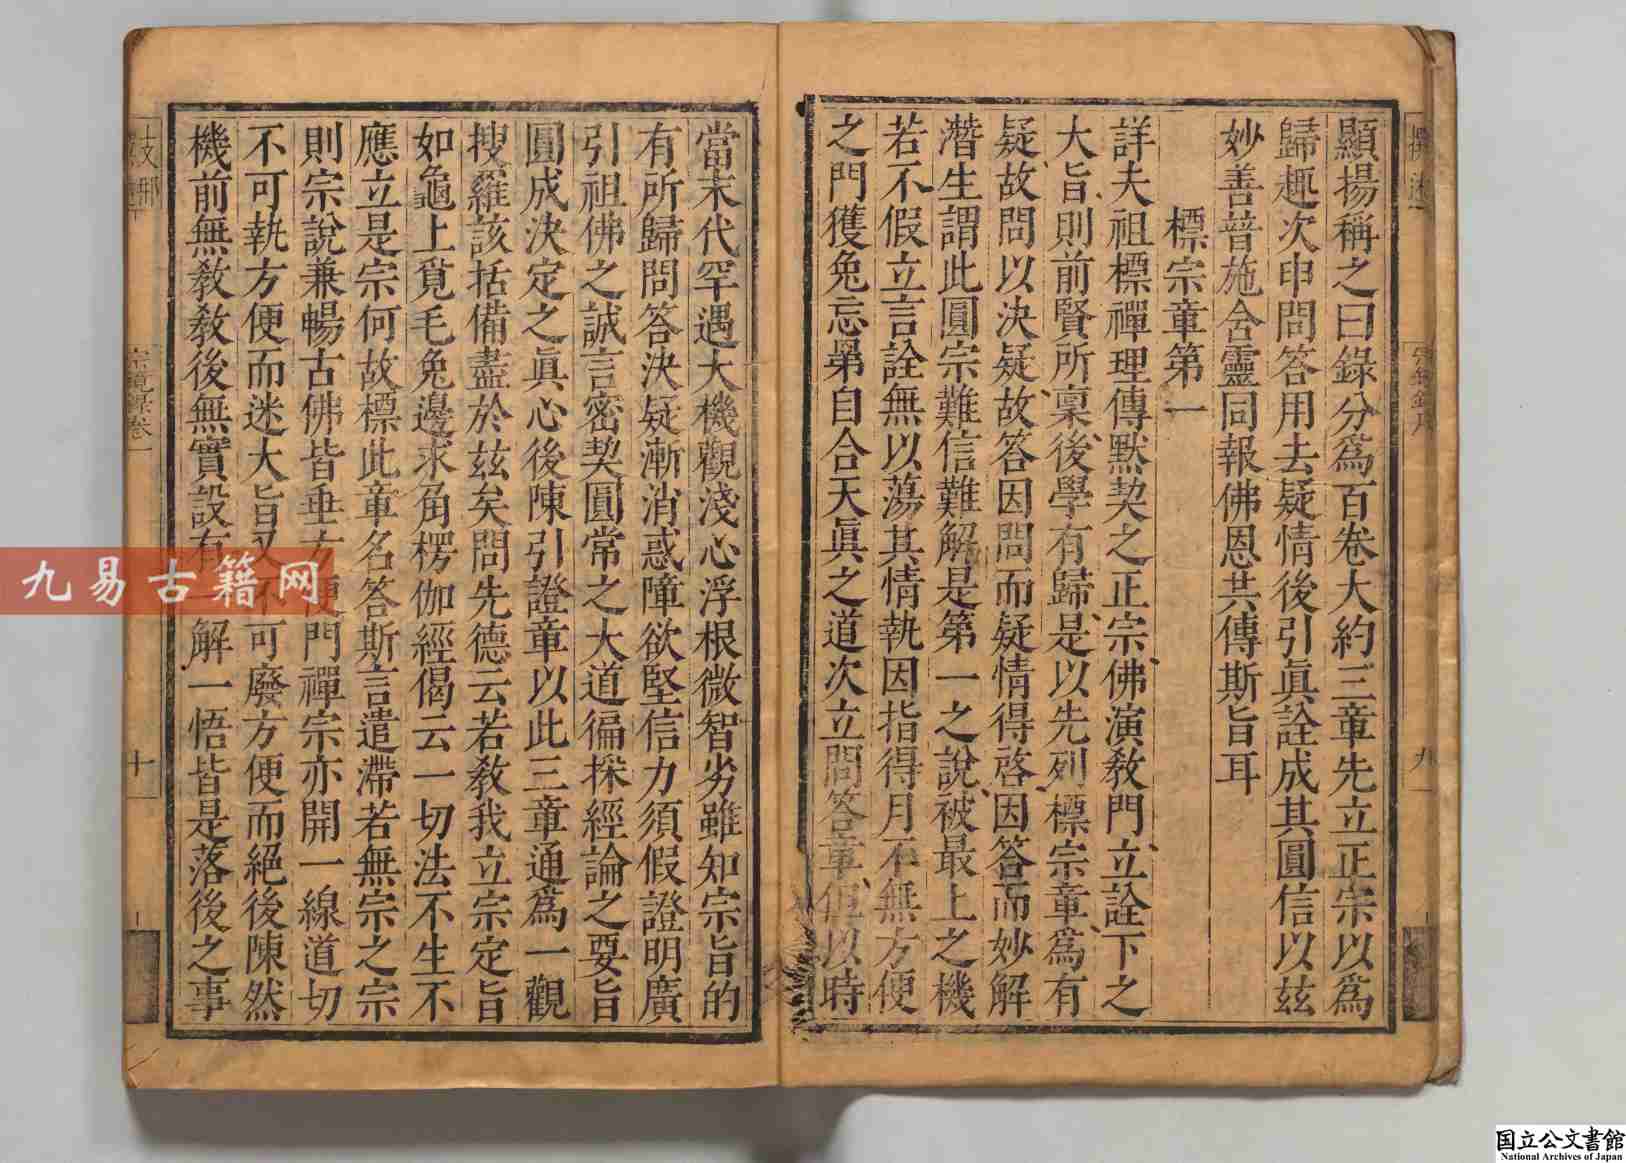 顯揚稱之曰錄分爲百卷大約三章先立正宗以爲
歸趣次申問答用去疑情後引眞詮成其圓信以玆
妙善普施含靈同報佛恩共傳斯旨耳
標宗章第一
詳夫祖標禪理傳默契之正宗佛演教門立詮下之
大旨則前賢所稟後學有歸是以先列標宗章爲有
疑故問以決疑故答因問而疑情得啓因答而妙解
潛生謂此圓宗難信難解是第一之說被最上之機
若不假立言詮無以蕩其情執因指得月不無方便
之門獲兔忘罤自合天眞之道次立問答章但以時
當末代罕遇大機觀淺心浮根微智劣雖知宗旨的
有所歸問答決疑漸消惑障欲堅信力須假證明廣
引祖佛之誠言密契圓常之大道徧採經論之要旨
圓成決定之眞心後陳引證章以此三章通爲一觀
搜羅該括備盡於玆矣問先德云若教我立宗定旨
如龜上覓毛兔邊求角楞伽經偈云一切法不生不
應立是宗何故標此章名答斯言遣滯若無宗之宗
則宗說兼暢古佛皆垂方便門禪宗亦開一線道切
不可執方便而迷大旨又不可廢方便而絕後陳然
機前無教教後無實設有一解一悟皆是落後之事
宗鏡錄卷一
十
九
九易古籍网
国立公文書館
National Archives of Japan